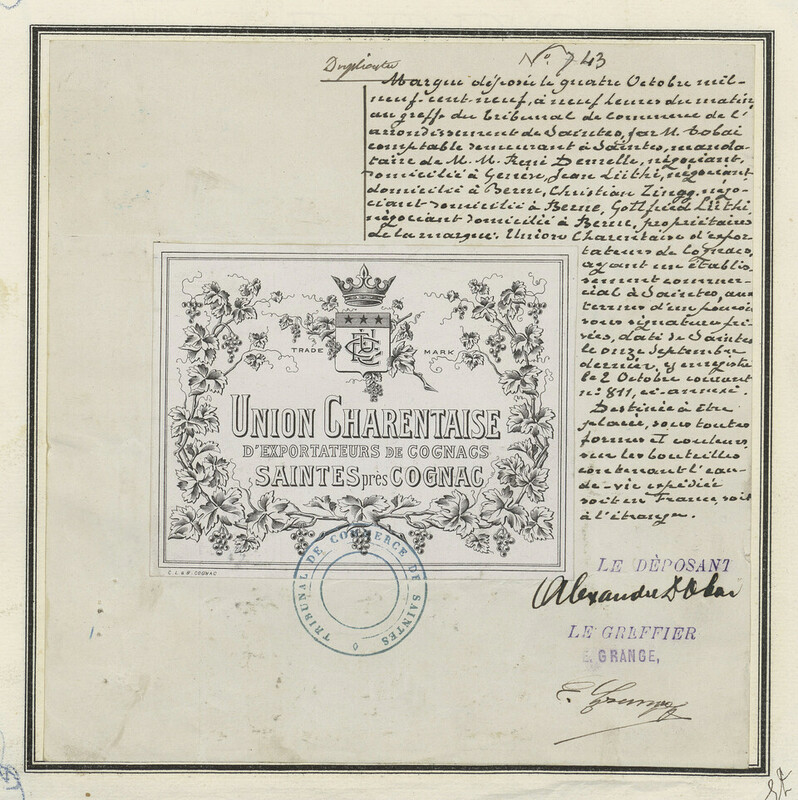 Duplicata
No. 743
Marque déposée le quatre Octobre mil-
neuf-cent-neuf, à neuf heures du matin,
au greffe du tribunal de commerce de l'
arrondissement de Saintes, par M.
comptable demeurant à Saintes, manda-
taire de M. M. René négociant,
domicilié à Jean Lüthi, négociant,
domicilié à Berne, Christian Zingg, négo-
ciant domicilié à Berne, Gottfried Lüthi,
négociant domicilié à Berne, propriétaires
de la marque: Union Charentaise d'expor-
tateurs de Cognacs,
ayant un établis-
sement commer-
cial à Saintes, aux
termes d'un pouvoir
sous signature pri-
vées, daté de Saintes
le onze Septembre
dernier, y enregistré
le 2 Octobre courant
n° 811, ci-annexé.
Destinée à être
placée, sous toutes
formes et couleurs,
sur les bouteilles
contenant l'eau-
de-vie expédiée
soit en France, soit
à l'étranger.
TRADE MARK
UNION CHARENTAISE
D'EXPORTATEURS DE COGNACS
SAINTES près COGNAC
C. L. & R. COGNAC
TRIBUNAL DE COMMERCE DE SAINTES
LE DÉPOSANT
LE GREFFIER
E. GRANGE,